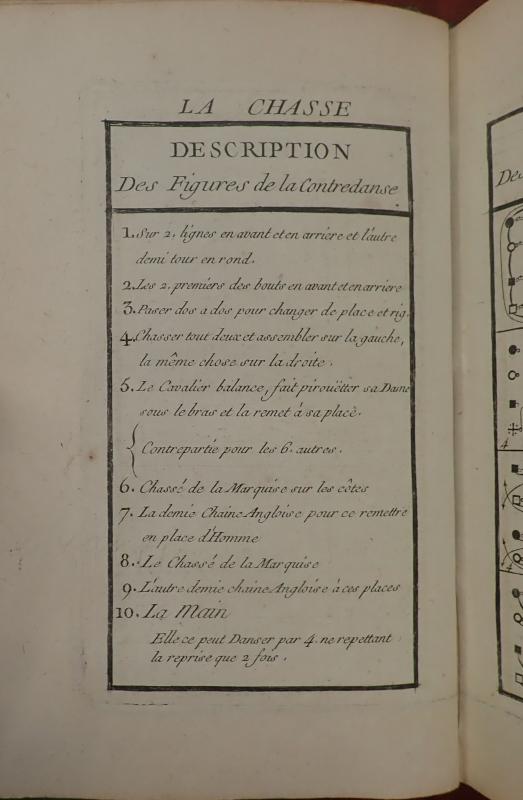 LA CHASSE
DESCRIPTION
Des Figures de la Contredanse
1. Sur 2. lignes en avant et en arriere et l'autre
demi tour en rond.
2. Les 2. premiers des bouts en avant et en arriere
3. Paser dos a dos pour changer de place et rig.
4. Chasser tout deux et assembler sur la gauche,
la même chose sur la droite.
5. Le Cavalier balance, fait pirouëtter sa Dame
sous le bras et la remet à sa place.
Contrepartie pour les 6. autres.
6. Chassé de la Marquise sur les côtes
7. La demie Chaine Angloise pour ce remettre
en place d'Homme
8. Le Chassé de la Marquise
9. L'autre demie chaine Angloise à ces places
10. La Main
Elle ce peut Danser par 4. ne repettant
la reprise que 2 fois.
Des
4